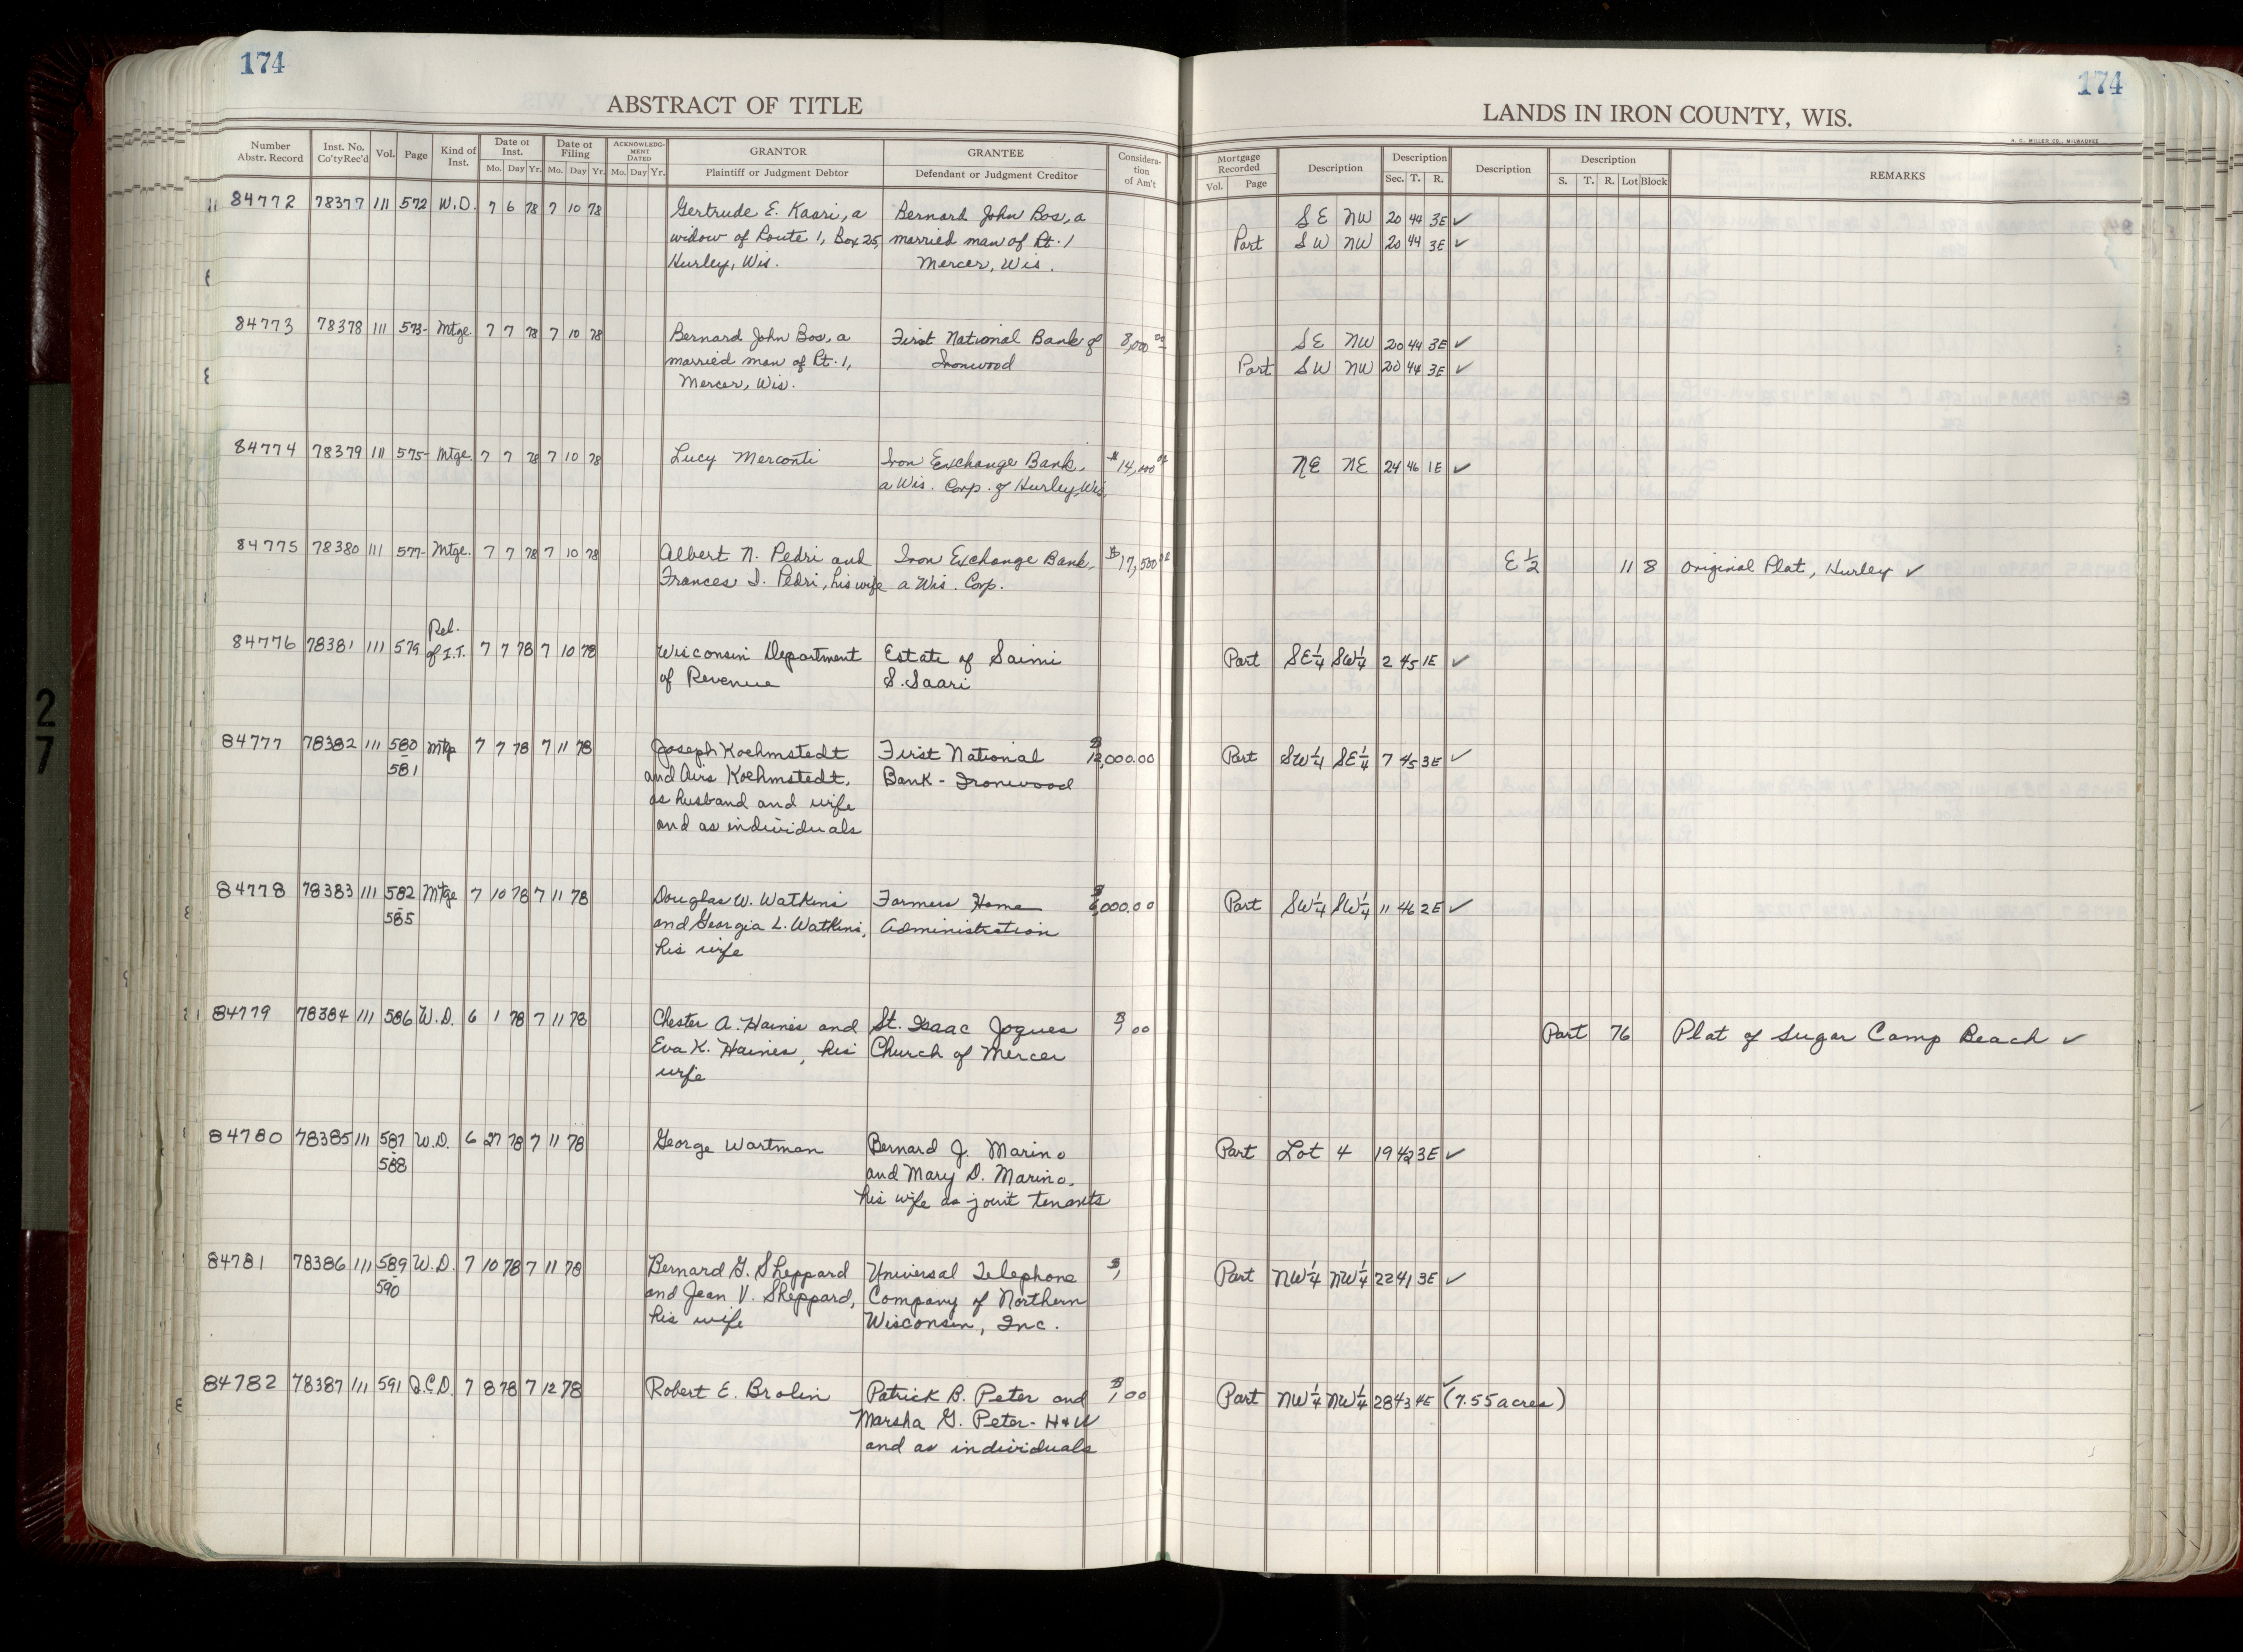 174
174
ABSTRACT OF TITLE
LANDS IN IRON COUNTY, WIS.
Number Abstr. Record
Inst. No. Co'ty Rec'd
Vol.
Page
Kind of Inst.
Date of Inst. Mo. Day Yr.
Date of Filing Mo. Day Yr.
ACKNOWLEDGMENT DATED Mo. Day Yr.
GRANTOR
Plaintiff or Judgment Debtor
GRANTEE
Defendant or Judgment Creditor
Consideration of Am't
Mortgage Recorded Vol. Page
Description
Description Sec. T. R.
Description
Description S. T. R. Lot Block
REMARKS
84772 78377 111 572 W.D. 7 6 78 7 10 78 Gertrude E. Kaari, a Bernard John Bos, a SE NW 20 44 3E ✓
widow of Route 1, Box 25, married man of Rt. 1 Part SW NW 20 44 3E ✓
Hurley, Wis. Mercer, Wis.
84773 78378 111 573- Mtge. 7 7 78 7 10 78 Bernard John Bos, a First National Bank of 8,000 00 SE NW 20 44 3E ✓
married man of Rt. 1, Ironwood Part SW NW 20 44 3E ✓
Mercer, Wis.
84774 78379 111 575- Mtge. 7 7 78 7 10 78 Lucy Merconti Iron Exchange Bank, $14,000 00 NE NE 24 46 1E ✓
a Wis. Corp. of Hurley, Wis.
84775 78380 111 577- Mtge. 7 7 78 7 10 78 Albert N. Pedri and Iron Exchange Bank, $17,500 00 E ½ 11 8 Original Plat, Hurley ✓
Frances I. Pedri, his wife a Wis. Corp.
84776 78381 111 579 Rel. of I.T. 7 7 78 7 10 78 Wisconsin Department Estate of Saimi Part SE¼ SW¼ 2 45 1E ✓
of Revenue S. Saari
84777 78382 111 580 Mtge 7 7 78 7 11 78 Joseph Koehmstedt First National $12,000.00 Part SW¼ SE¼ 7 45 3E ✓
581 and Avis Koehmstedt, Bank - Ironwood
as husband and wife
and as individuals
84778 78383 111 582 Mtge 7 10 78 7 11 78 Douglas W. Watkins Farmers Home $ ,000.00 Part SW¼ SW¼ 11 46 2E ✓
- 585 and Georgia L. Watkins, Administration
his wife
84779 78384 111 586 W.D. 6 1 78 7 11 78 Chester A. Haines and St. Isaac Jogues $1,00 Part 76 Plat of Sugar Camp Beach ✓
Eva K. Haines, his Church of Mercer
wife
84780 78385 111 587 W.D. 6 27 78 7 11 78 George Wartman Bernard J. Marino Part Lot 4 19 42 3E ✓
- 588 and Mary D. Marino,
his wife as joint tenants
84781 78386 111 589 W.D. 7 10 78 7 11 78 Bernard G. Sheppard Universal Telephone $1 Part NW¼ NW¼ 22 41 3E ✓
- 590 and Jean V. Sheppard, Company of Northern
his wife Wisconsin, Inc.
84782 78387 111 591 Q.C.D. 7 8 78 7 12 78 Robert E. Brolin Patrick B. Peter and $1,00 Part NW¼ NW¼ 28 43 4E ✓ (7.55 acres)
Marsha G. Peter - H+W
and as individuals
27